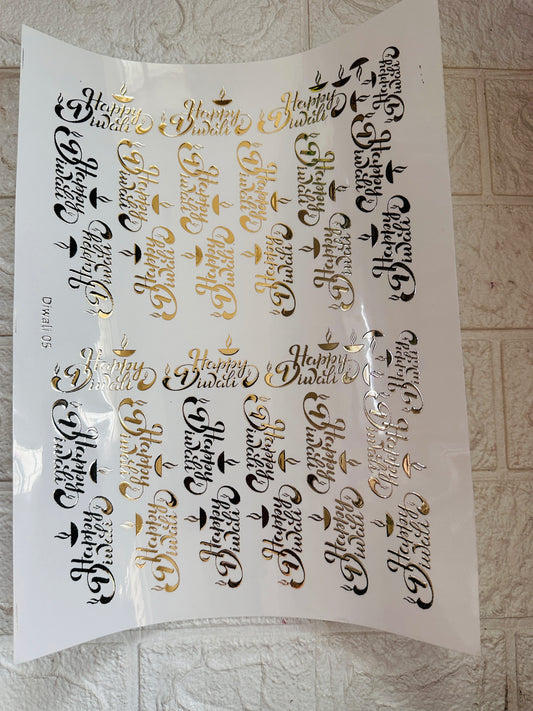 Happy
Diwali
Happy
Diwali
Happy
Diwali
Happy
Diwali
Happy
Diwali
Happy
Diwali
Happy
Diwali
Happy
Diwali
Happy
Diwali
Happy
Diwali
Happy
Diwali
Happy
Diwali
Happy
Diwali
Happy
Diwali
Happy
Diwali
Happy
Diwali
Diwali 05
Happy
Diwali
Happy
Diwali
Happy
Diwali
Happy
Diwali
Happy
Diwali
Happy
Diwali
Happy
Diwali
Happy
Diwali
Happy
Diwali
Happy
Diwali
Happy
Diwali
Happy
Diwali
Happy
Diwali
Happy
Diwali
Happy
Diwali
Happy
Diwali